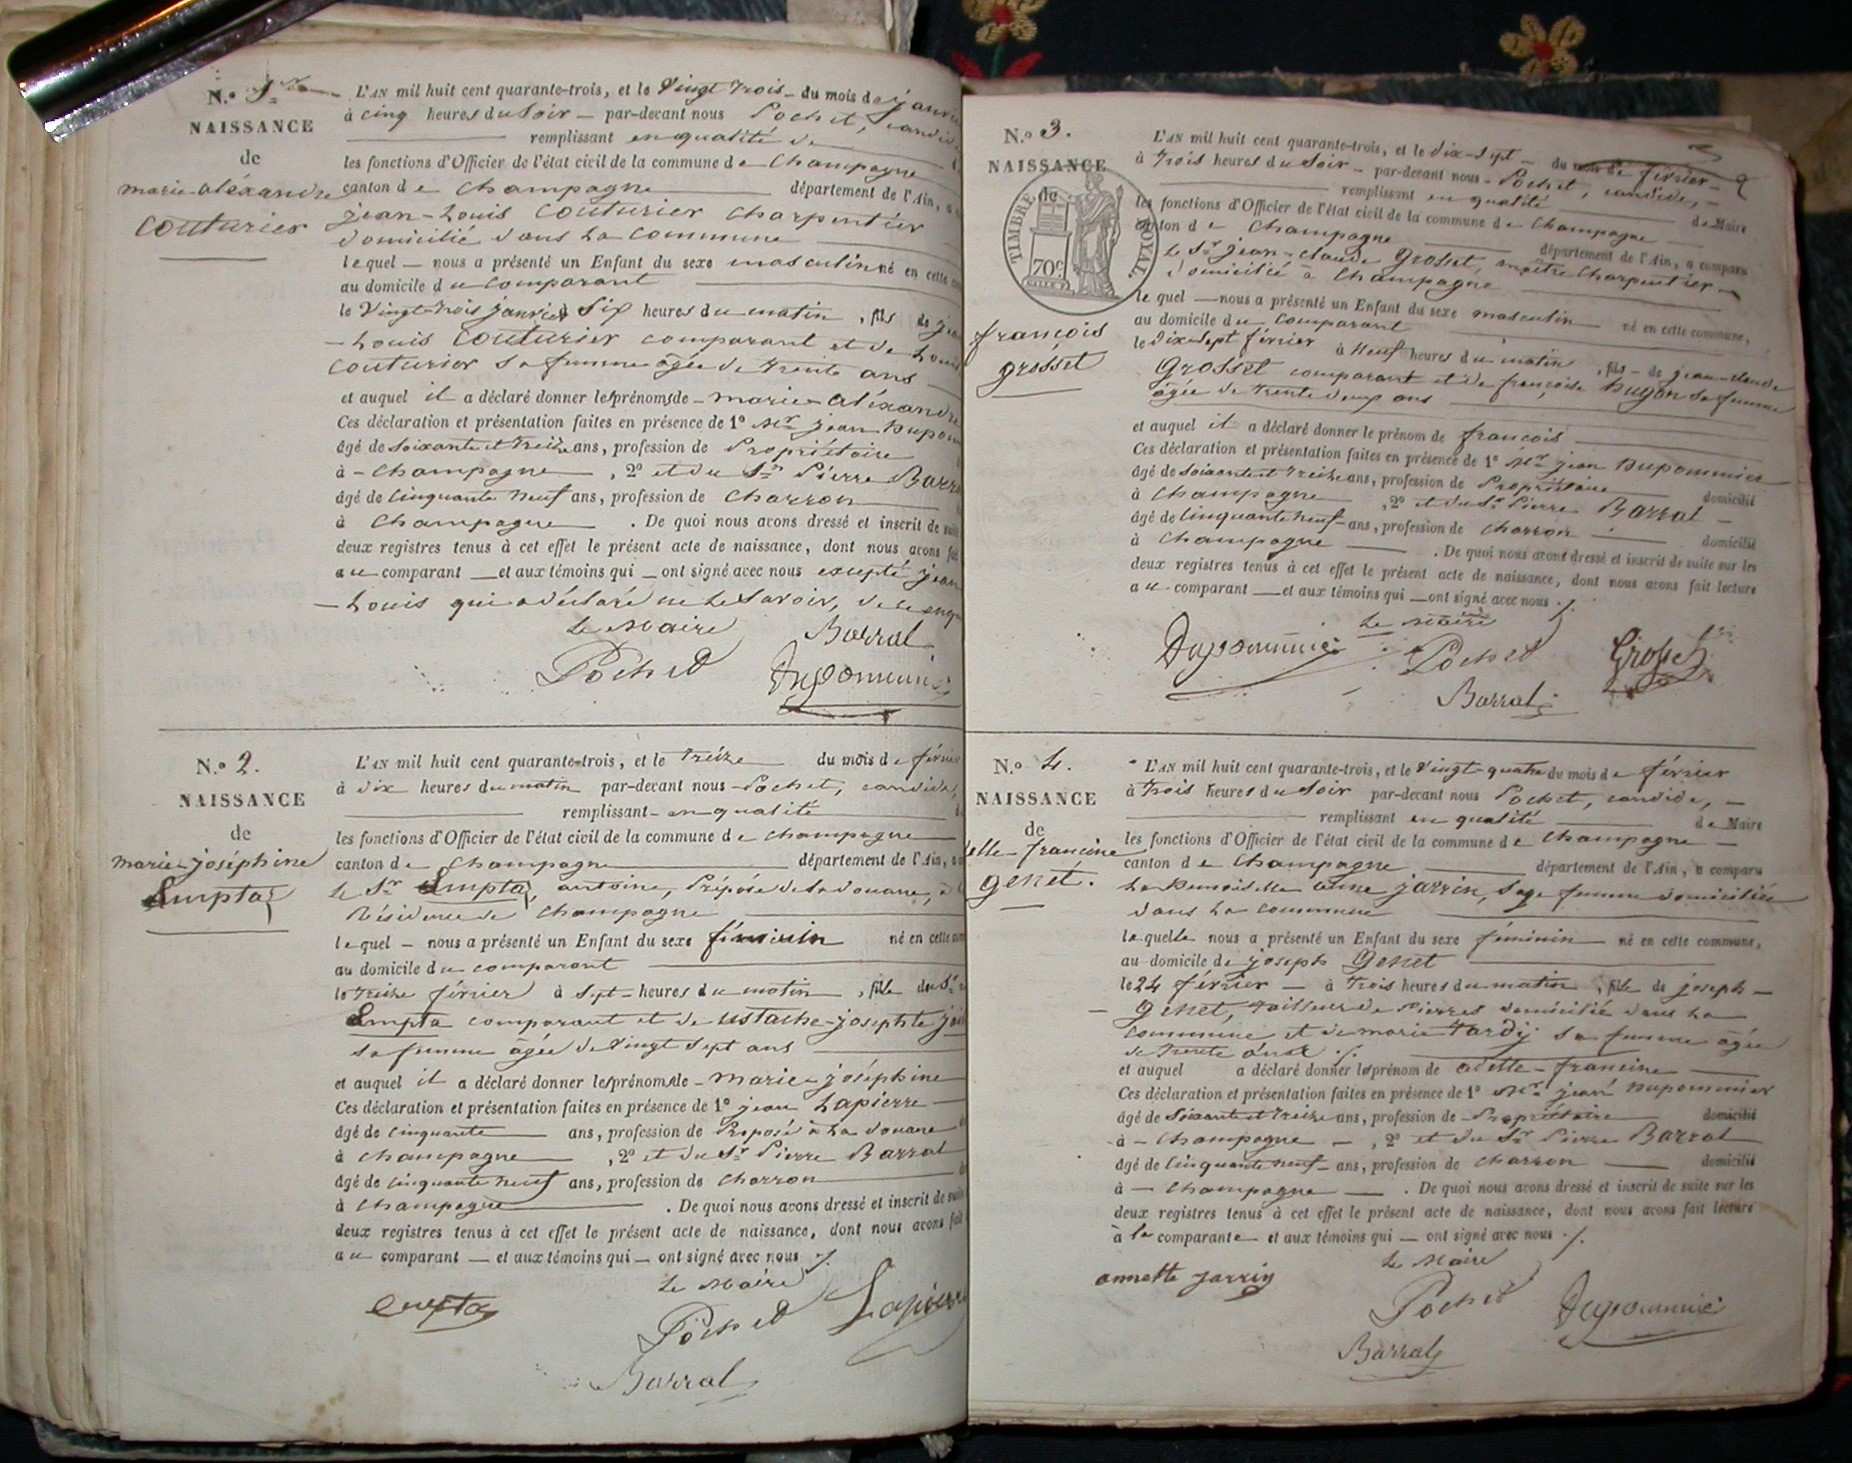 N.o 1er
NAISSANCE
de
marie-aléxandre
couturier
L'AN mil huit cent quarante-trois, et le Vingt trois du mois de
à cinq heures du Soir par-devant nous Pochet,
remplissant en qualité de
les fonctions d'Officier de l'état civil de la commune de Champagne
canton de Champagne département de l'Ain,
jean-Louis Couturier Charpentier
domicilié dans La Commune
lequel nous a présenté un Enfant du sexe masculin né en cette
au domicile du Comparant
le Vingt-trois janvier à Six heures du matin, fils de
Louis Couturier comparant et de
Couturier Sa femme agée de trente ans
et auquel il a déclaré donner les prénoms de marie-aléxandre
Ces déclaration et présentation faites en présence de 1º Mr jean
âgé de Soixante et treize ans, profession de Propriétaire
à Champagne, 2º et du Sr Pierre
âgé de Cinquante neuf ans, profession de Charron
à Champagne. De quoi nous avons dressé et inscrit de
deux registres tenus à cet effet le présent acte de naissance, dont nous avons
au comparant et aux témoins qui ont signé avec nous excepté jean
Louis qui a déclaré ne Le Savoir, de ce
Le Maire Barral
Pochet Dupommier
N.o 2.
NAISSANCE
de
marie-joséphine
Empta
L'AN mil huit cent quarante-trois, et le treize du mois de
à dix heures du matin par-devant nous Pochet, candide,
remplissant en qualité
les fonctions d'Officier de l'état civil de la commune de Champagne
canton de Champagne département de l'Ain,
Le Sr Empta, antoine, Préposé de La douane, à
Résidence de Champagne
lequel nous a présenté un Enfant du sexe féminin né en cette
au domicile du comparant
le treize février à Sept heures du matin, fille du Sr
Empta comparant et de ustache-josephte
Sa femme âgée de Vingt Sept ans
et auquel il a déclaré donner les prénoms de marie-joséphine
Ces déclaration et présentation faites en présence de 1º jean Lapierre
âgé de cinquante ans, profession de Préposé à La douane
à Champagne, 2º et du Sr Pierre Barral
âgé de Cinquante neuf ans, profession de Charron
à Champagne. De quoi nous avons dressé et inscrit de
deux registres tenus à cet effet le présent acte de naissance, dont nous avons
au comparant et aux témoins qui ont signé avec nous ./.
Le Maire
Empta Pochet Lapierre
Barral
N.o 3.
NAISSANCE
de
TIMBRE ROYAL.
70c
françois
grosset
L'AN mil huit cent quarante-trois, et le dix-Sept du mois de février
à trois heures du Soir par-devant nous Pochet, candide,
remplissant en qualité de Maire
les fonctions d'Officier de l'état civil de la commune de Champagne
canton de Champagne département de l'Ain, a comparu
Le Sr jean-claude Grosset, maître Charpentier
domicilié à Champagne
lequel nous a présenté un Enfant du sexe masculin né en cette commune,
au domicile du comparant
le dix-Sept février à Neuf heures du matin, fils de jean-claude
Grosset comparant et de françoise Hugon Sa femme
âgée de trente deux ans
et auquel il a déclaré donner le prénom de françois
Ces déclaration et présentation faites en présence de 1º Mr jean Dupommier
âgé de Soixante et treize ans, profession de Propriétaire domicilié
à Champagne, 2º et du Sr Pierre Barral
âgé de Cinquante neuf ans, profession de Charron domicilié
à Champagne. De quoi nous avons dressé et inscrit de suite sur les
deux registres tenus à cet effet le présent acte de naissance, dont nous avons fait lecture
au comparant et aux témoins qui ont signé avec nous ./.
Le Maire
Dupommier Pochet Grosset
Barral
N.o 4.
NAISSANCE
de
elle-francine
genet.
L'AN mil huit cent quarante-trois, et le Vingt-quatre du mois de février
à trois heures du Soir par-devant nous Pochet, candide,
remplissant en qualité de Maire
les fonctions d'Officier de l'état civil de la commune de Champagne
canton de Champagne département de l'Ain, a comparu
La Demoiselle anne jarrin, Sage femme domiciliée
dans La commune
laquelle nous a présenté un Enfant du sexe féminin né en cette commune,
au domicile de joseph Genet
le 24 février à trois heures du matin, fille de joseph
Genet, tailleur de Pierres domicilié dans La
commune et de marie tardy Sa femme agée
de trente ./.
et auquel a déclaré donner le prénom de adelle-francine
Ces déclaration et présentation faites en présence de 1º Mr jean Dupommier
âgé de Soixante et treize ans, profession de Propriétaire domicilié
à Champagne, 2º et du Sr Pierre Barral
âgé de Cinquante neuf ans, profession de Charron domicilié
à Champagne. De quoi nous avons dressé et inscrit de suite sur les
deux registres tenus à cet effet le présent acte de naissance, dont nous avons fait lecture
à la comparante et aux témoins qui ont signé avec nous ./.
Le Maire
annette jarrin Pochet Dupommier
Barral